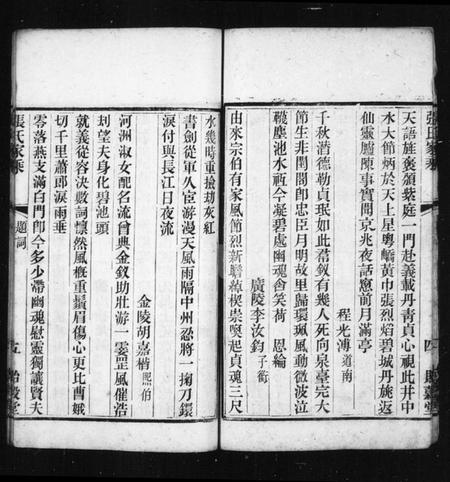 張氏家乘
天語旌褒頒紫庭一門赴義載丹青貞心視此井中
水大節炳於天上星粵嶠黃巾張烈焰碧城丹旐返
仙靈臚陳事實聞京兆夜話愈前月滿亭
程光溥道南
千秋潛德勒貞珉如此簪釵有幾人死向泉臺完大
節生非閥閱即忠臣月明故里歸環珮風動微波泣
韈塵池水祗今凝碧處幽魂含笑荷 恩綸
廣陵李汝鈞子衡
由來宗伯有家風節烈新瞻綽楔崇喚起貞魂三尺
四
水幾時重撿劫灰紅
書劍從軍久宦游漫天風雨隔中州忍將一掬刀鐶
淚付與長江日夜流
金陵胡嘉楷熙伯
河洲淑女配名流曾典金釵助壯游一霎罡風催浩
刦望夫身化碧池頭
就義從容決數詞懍然風概重鬚眉傷心更比曹娥
切千里蕭郎淚雨垂
零落燕支滿白門即今多少帶幽魂慰靈獨讓賢夫
張氏家乘
題詞
五